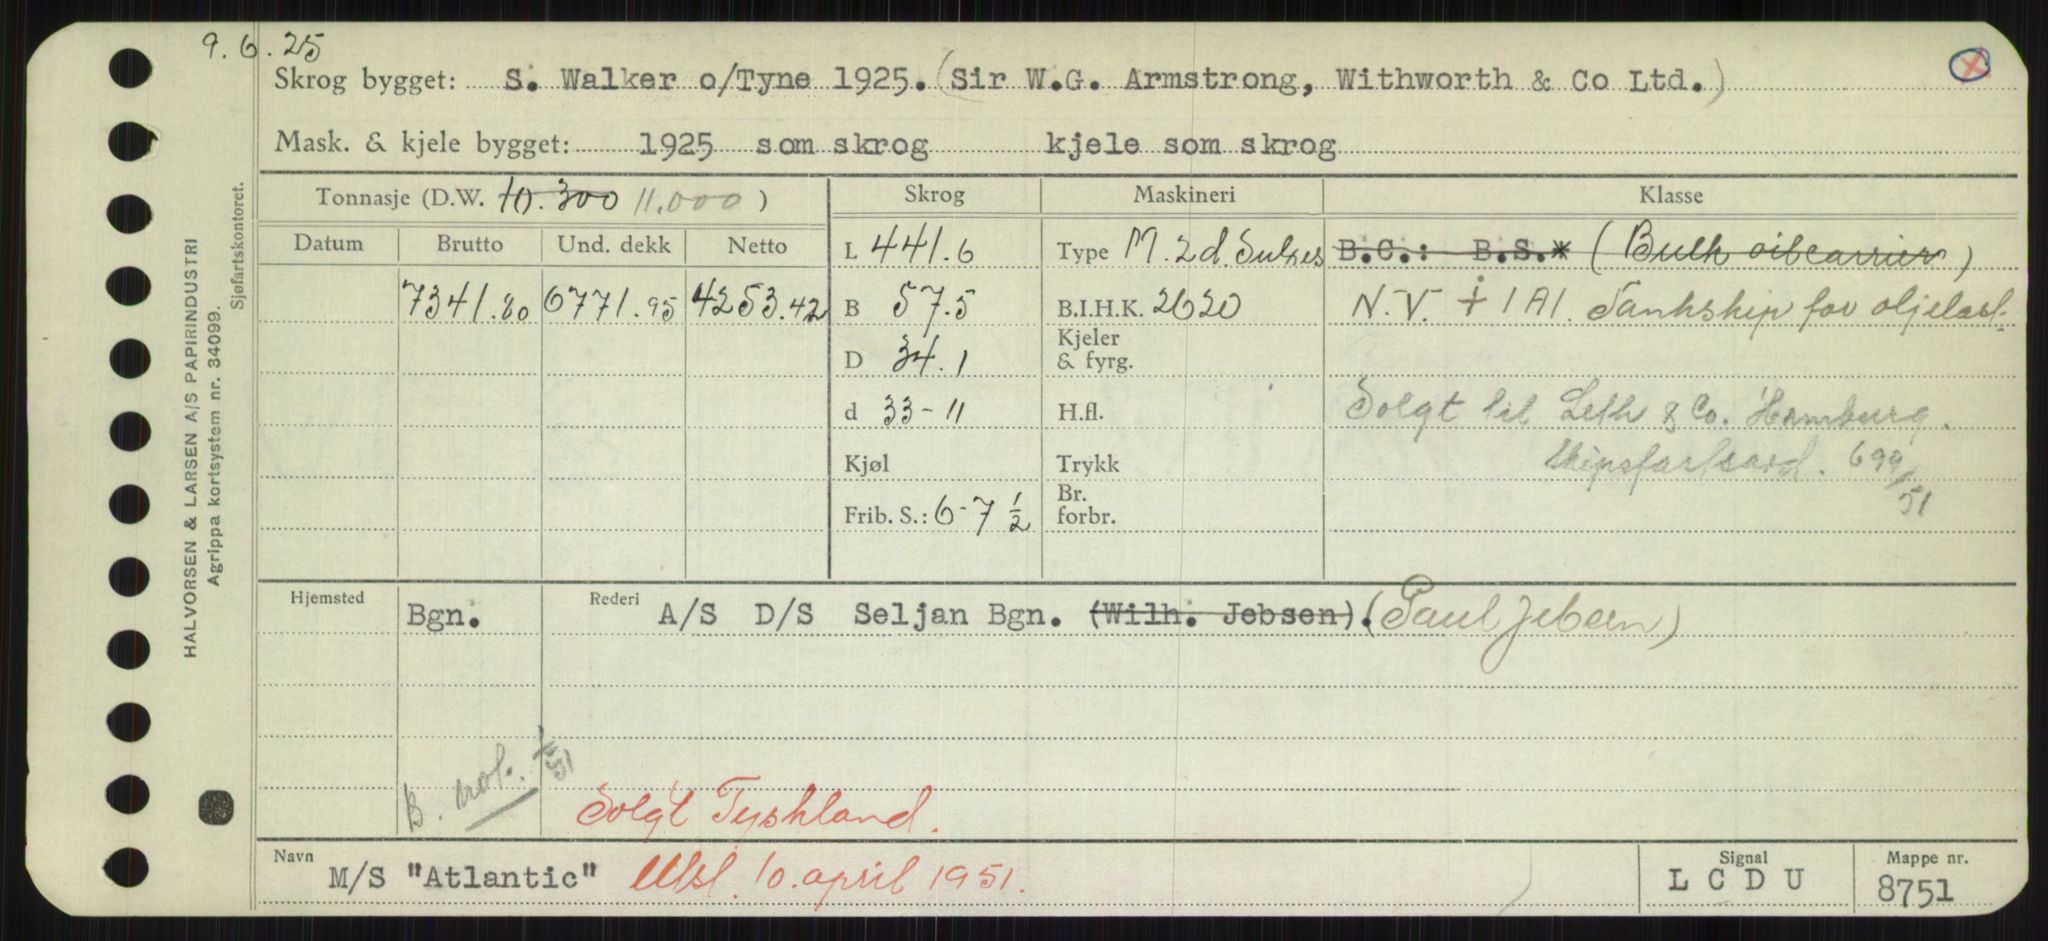 9.6.25
Skrog bygget: S. Walker o/Tyne 1925. (Sir W.G. Armstrong, Withworth & Co Ltd.)
Mask. & kjele bygget: 1925 som skrog kjele som skrog
Tonnasje (D.W. 10.300 11.000) Skrog Maskineri Klasse
Datum Brutto Und. dekk Netto L 441.6 Type M. 2 d. Sulzes B.C.: B.S.* (Bulk oilcarrier)
7341.80 6771.95 4253.42 B 57.5 B.I.H.K. 2620 N.V. + 1A1. Tankskip for oljelast
D 34.1 Kjeler & fyrg.
d 33-11 H.fl. Solgt til Leth & Co. Hamburg.
Kjøl Trykk Skipsfartsavd. 699/51
Frib. S.: 6-7 1/2 Br. forbr.
Hjemsted Bgn. Rederi A/S D/S Seljan Bgn. (Wilh. Jebsen). (Paul Jebsen)
B. not. /51
Solgt Tyskland.
Navn M/S "Atlantic" Utsl. 10. april 1951. Signal L C D U Mappe nr. 8751
HALVORSEN & LARSEN A/S PAPIRINDUSTRI
Agrippa kortsystem nr. 34099.
Sjøfartskontoret.